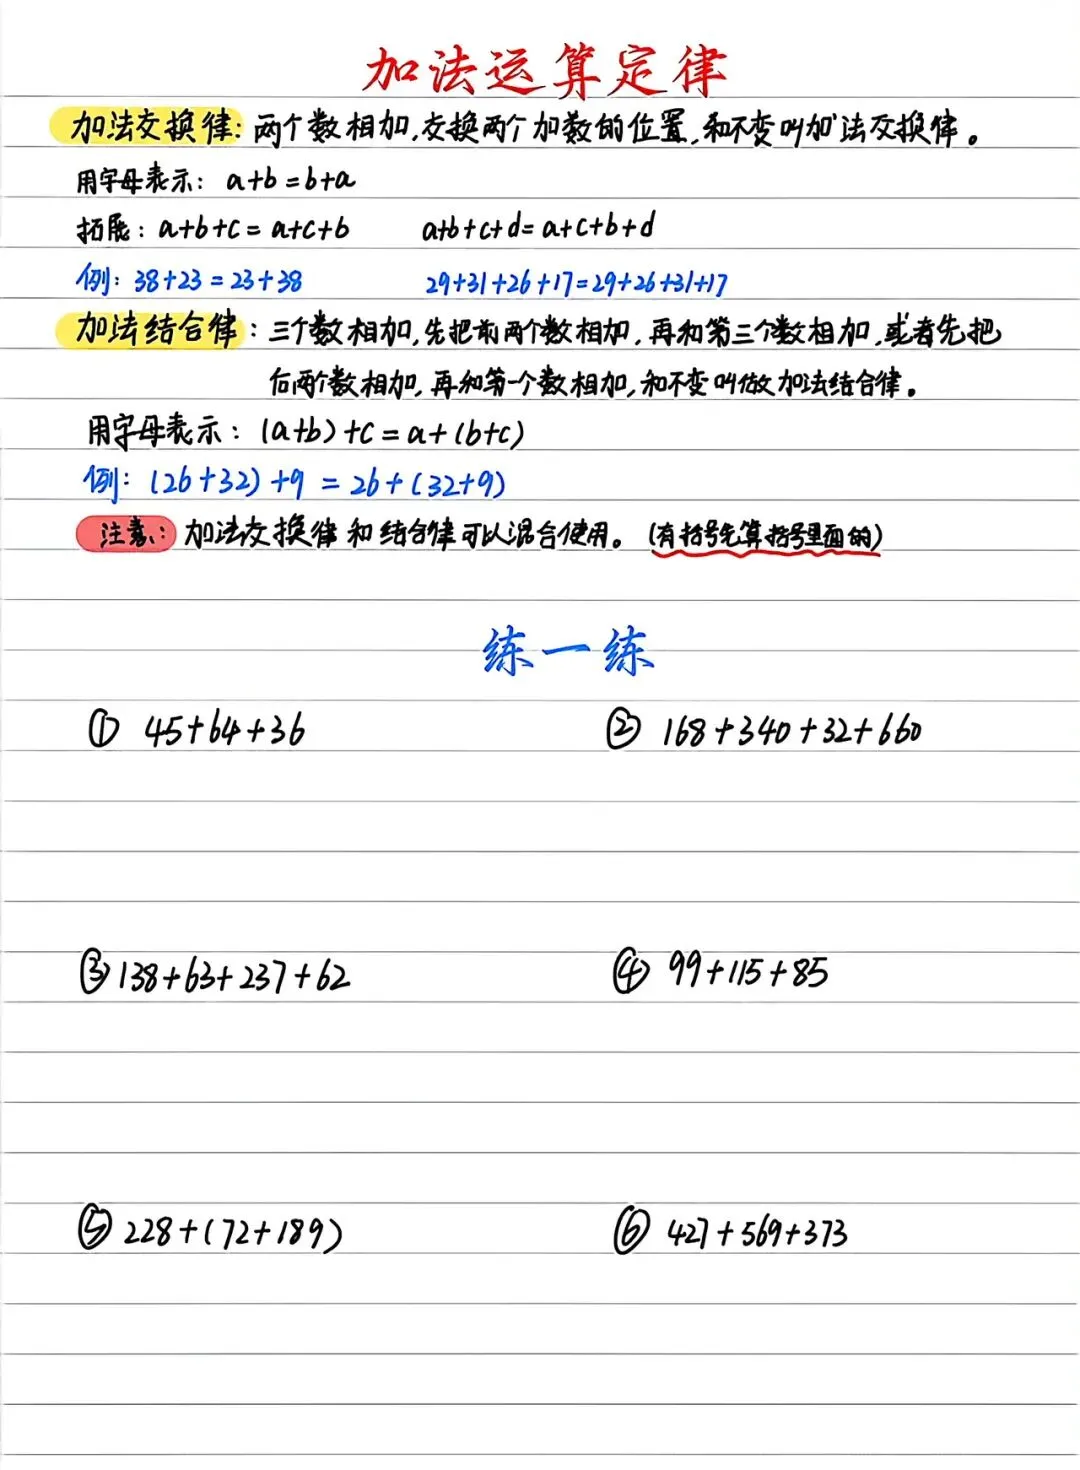 加法运算定律
加法交换律：两个数相加，交换两个加数的位置，和不变叫加法交换律。
用字母表示：a+b=b+a
拓展：a+b+c=a+c+b a+b+c+d=a+c+b+d
例：38+23=23+38 29+31+26+17=29+26+31+17
加法结合律：三个数相加，先把前两个数相加，再和第三个数相加，或者先把
后两个数相加，再和第一个数相加，和不变叫做加法结合律。
用字母表示：(a+b)+c=a+(b+c)
例：(26+32)+9=26+(32+9)
注意：加法交换律和结合律可以混合使用。(有括号先算括号里面的)
练一练
① 45+64+36 ② 168+340+32+660
③ 138+63+237+62 ④ 99+115+85
⑤ 228+(72+189) ⑥ 427+569+373